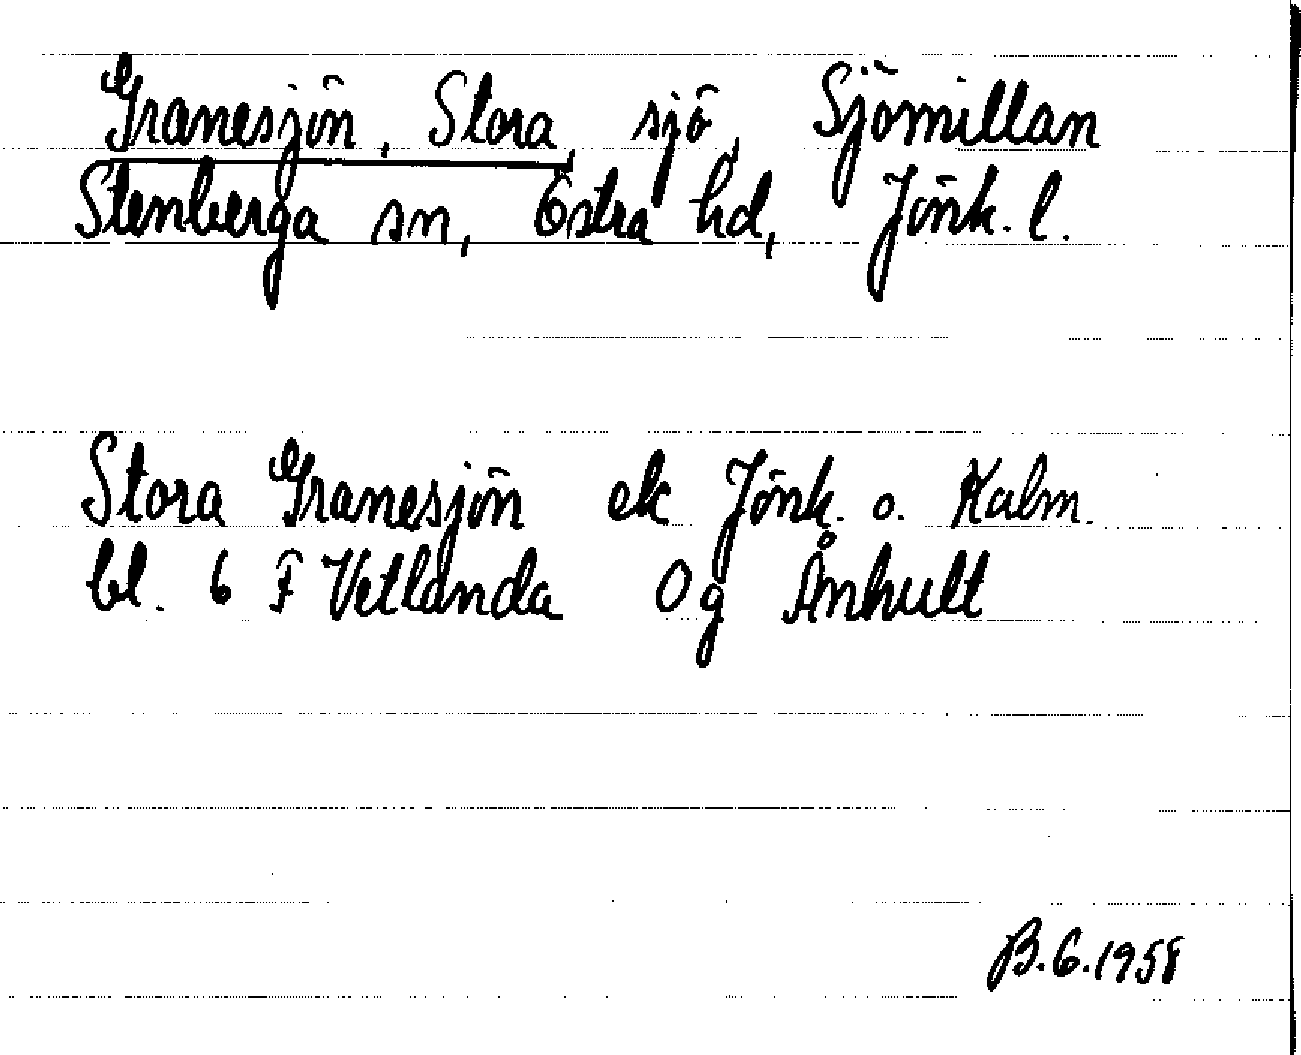 Granesjön, Stora, sjö, Sjömillan
Stenberga sn, Östra hd, Jönk. l.
Stora Granesjön ek Jönk. o. Kalm.
bl. 6 F Vetlanda Og Ånhult
B.G.1958